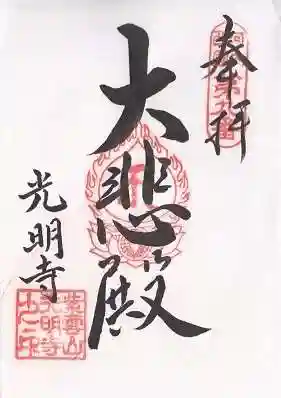 奉拝
大悲殿
光明寺
紫雲山
光明寺